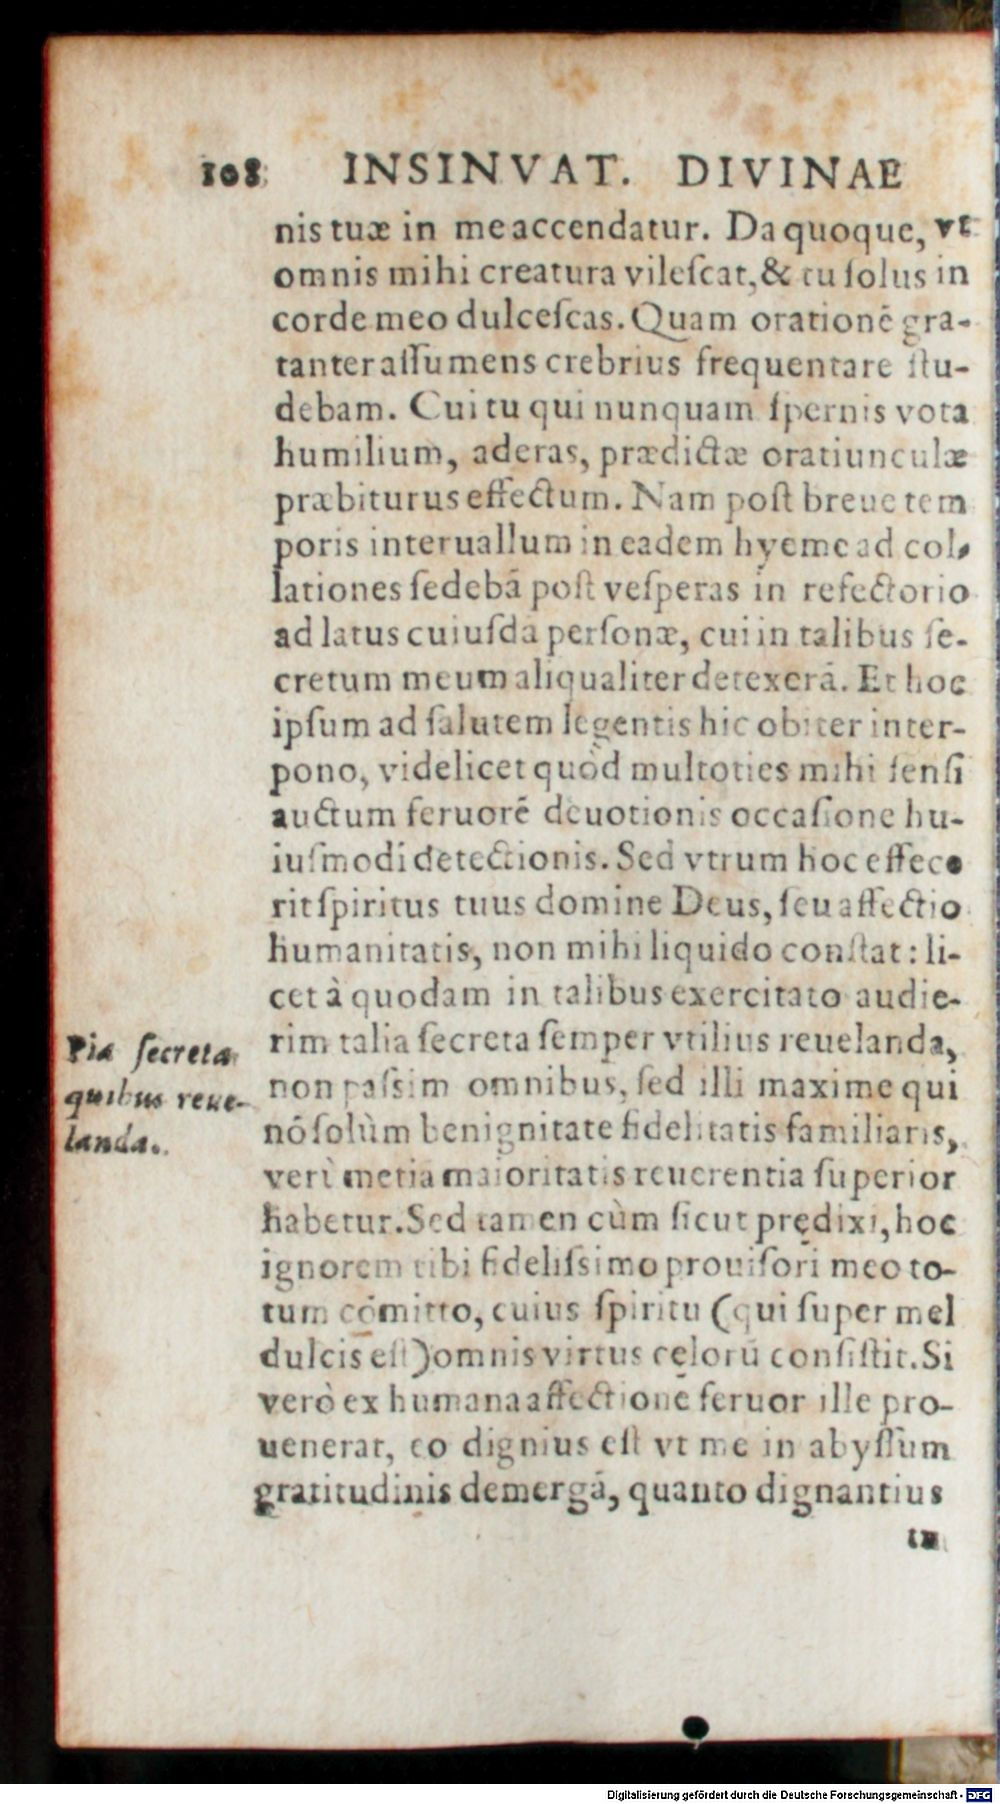 108 INSINVAT. DIVINAE
nis tuæ in me accendatur. Da quoque, vt
omnis mihi creatura vileſcat, & tu ſolus in
corde meo dulceſcas. Quam orationē gra-
tanter aſſumens crebrius frequentare ſtu-
debam. Cui tu qui nunquam ſpernis vota
humilium, aderas, prædictæ oratiunculæ
præbiturus effectum. Nam poſt breue tem
poris interuallum in eadem hyeme ad col-
lationes ſedebā poſt veſperas in refectorio
ad latus cuiuſda perſonæ, cui in talibus ſe-
cretum meum aliqualiter detexerā. Et hoc
ipſum ad ſalutem legentis hic obiter inter-
pono, videlicet quòd multoties mihi ſenſi
auctum feruorē deuotionis occaſione hu-
iuſmodi detectionis. Sed vtrum hoc effece
rit ſpiritus tuus domine Deus, ſeu affectio
humanitatis, non mihi liquido conſtat: li-
cet à quodam in talibus exercitato audie-
rim talia ſecreta ſemper vtilius reuelanda,
non paſsim omnibus, ſed illi maxime qui
nō ſolùm benignitate fidelitatis familiaris,
verì metia maioritatis reuerentia ſuperior
habetur. Sed tamen cùm ſicut prędixi, hoc
ignorem tibi fideliſsimo prouiſori meo to-
tum cōmitto, cuius ſpiritu (qui ſuper mel
dulcis eſt) omnis virtus cęlorū conſiſtit. Si
verò ex humana affectione feruor ille pro-
uenerat, eo dignius eſt vt me in abyſſum
gratitudinis demergā, quanto dignantius
in
Pia ſecreta
quibus reue-
landa.
Digitalisierung gefördert durch die Deutsche Forschungsgemeinschaft - DFG